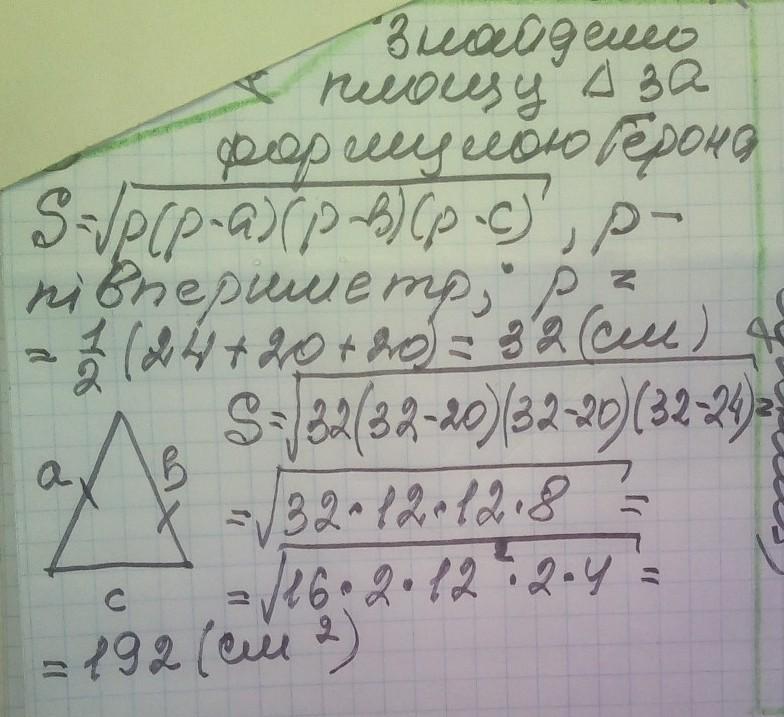 Знайдемо
площу Δ за
формулою Герона
S=√p(p-a)(p-в)(p-c), p–
півпериметр; p =
= 1/2 (24+20+20)= 32 (см)
S=√32(32-20)(32-20)(32-24)=
a
в
c
=√32·12·12·8 =
=√16·2·12²·2·4 =
=192 (см²)